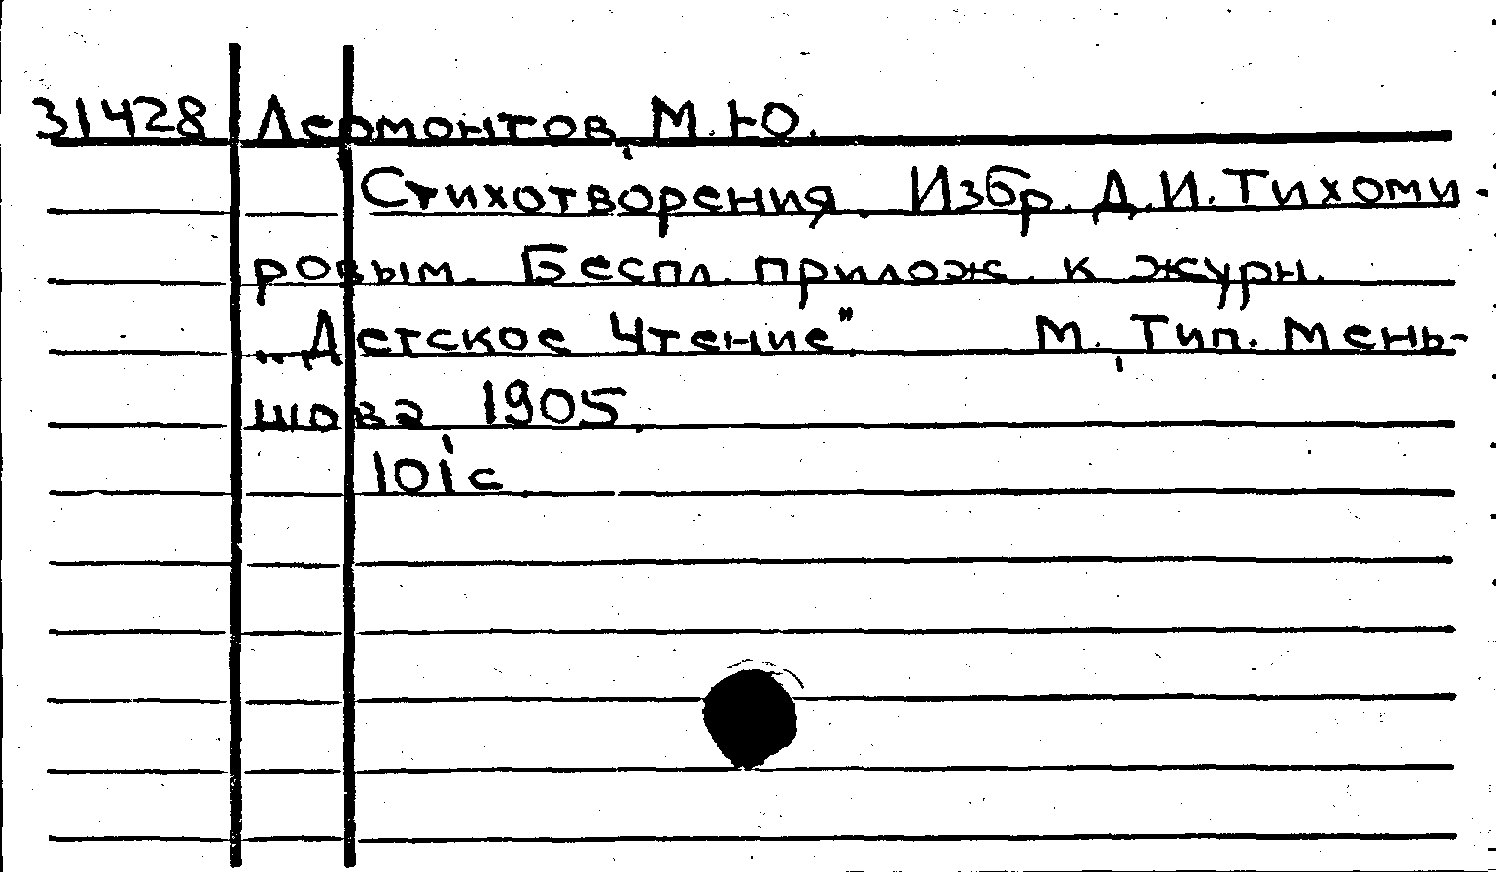 31428 Лермонтов, М.Ю.
Стихотворения. Избр. Д.И.Тихоми-
ровым. Беспл. прилож. к журн.
„Детское Чтение". М., Тип. Мень-
шова, 1905.
101 с